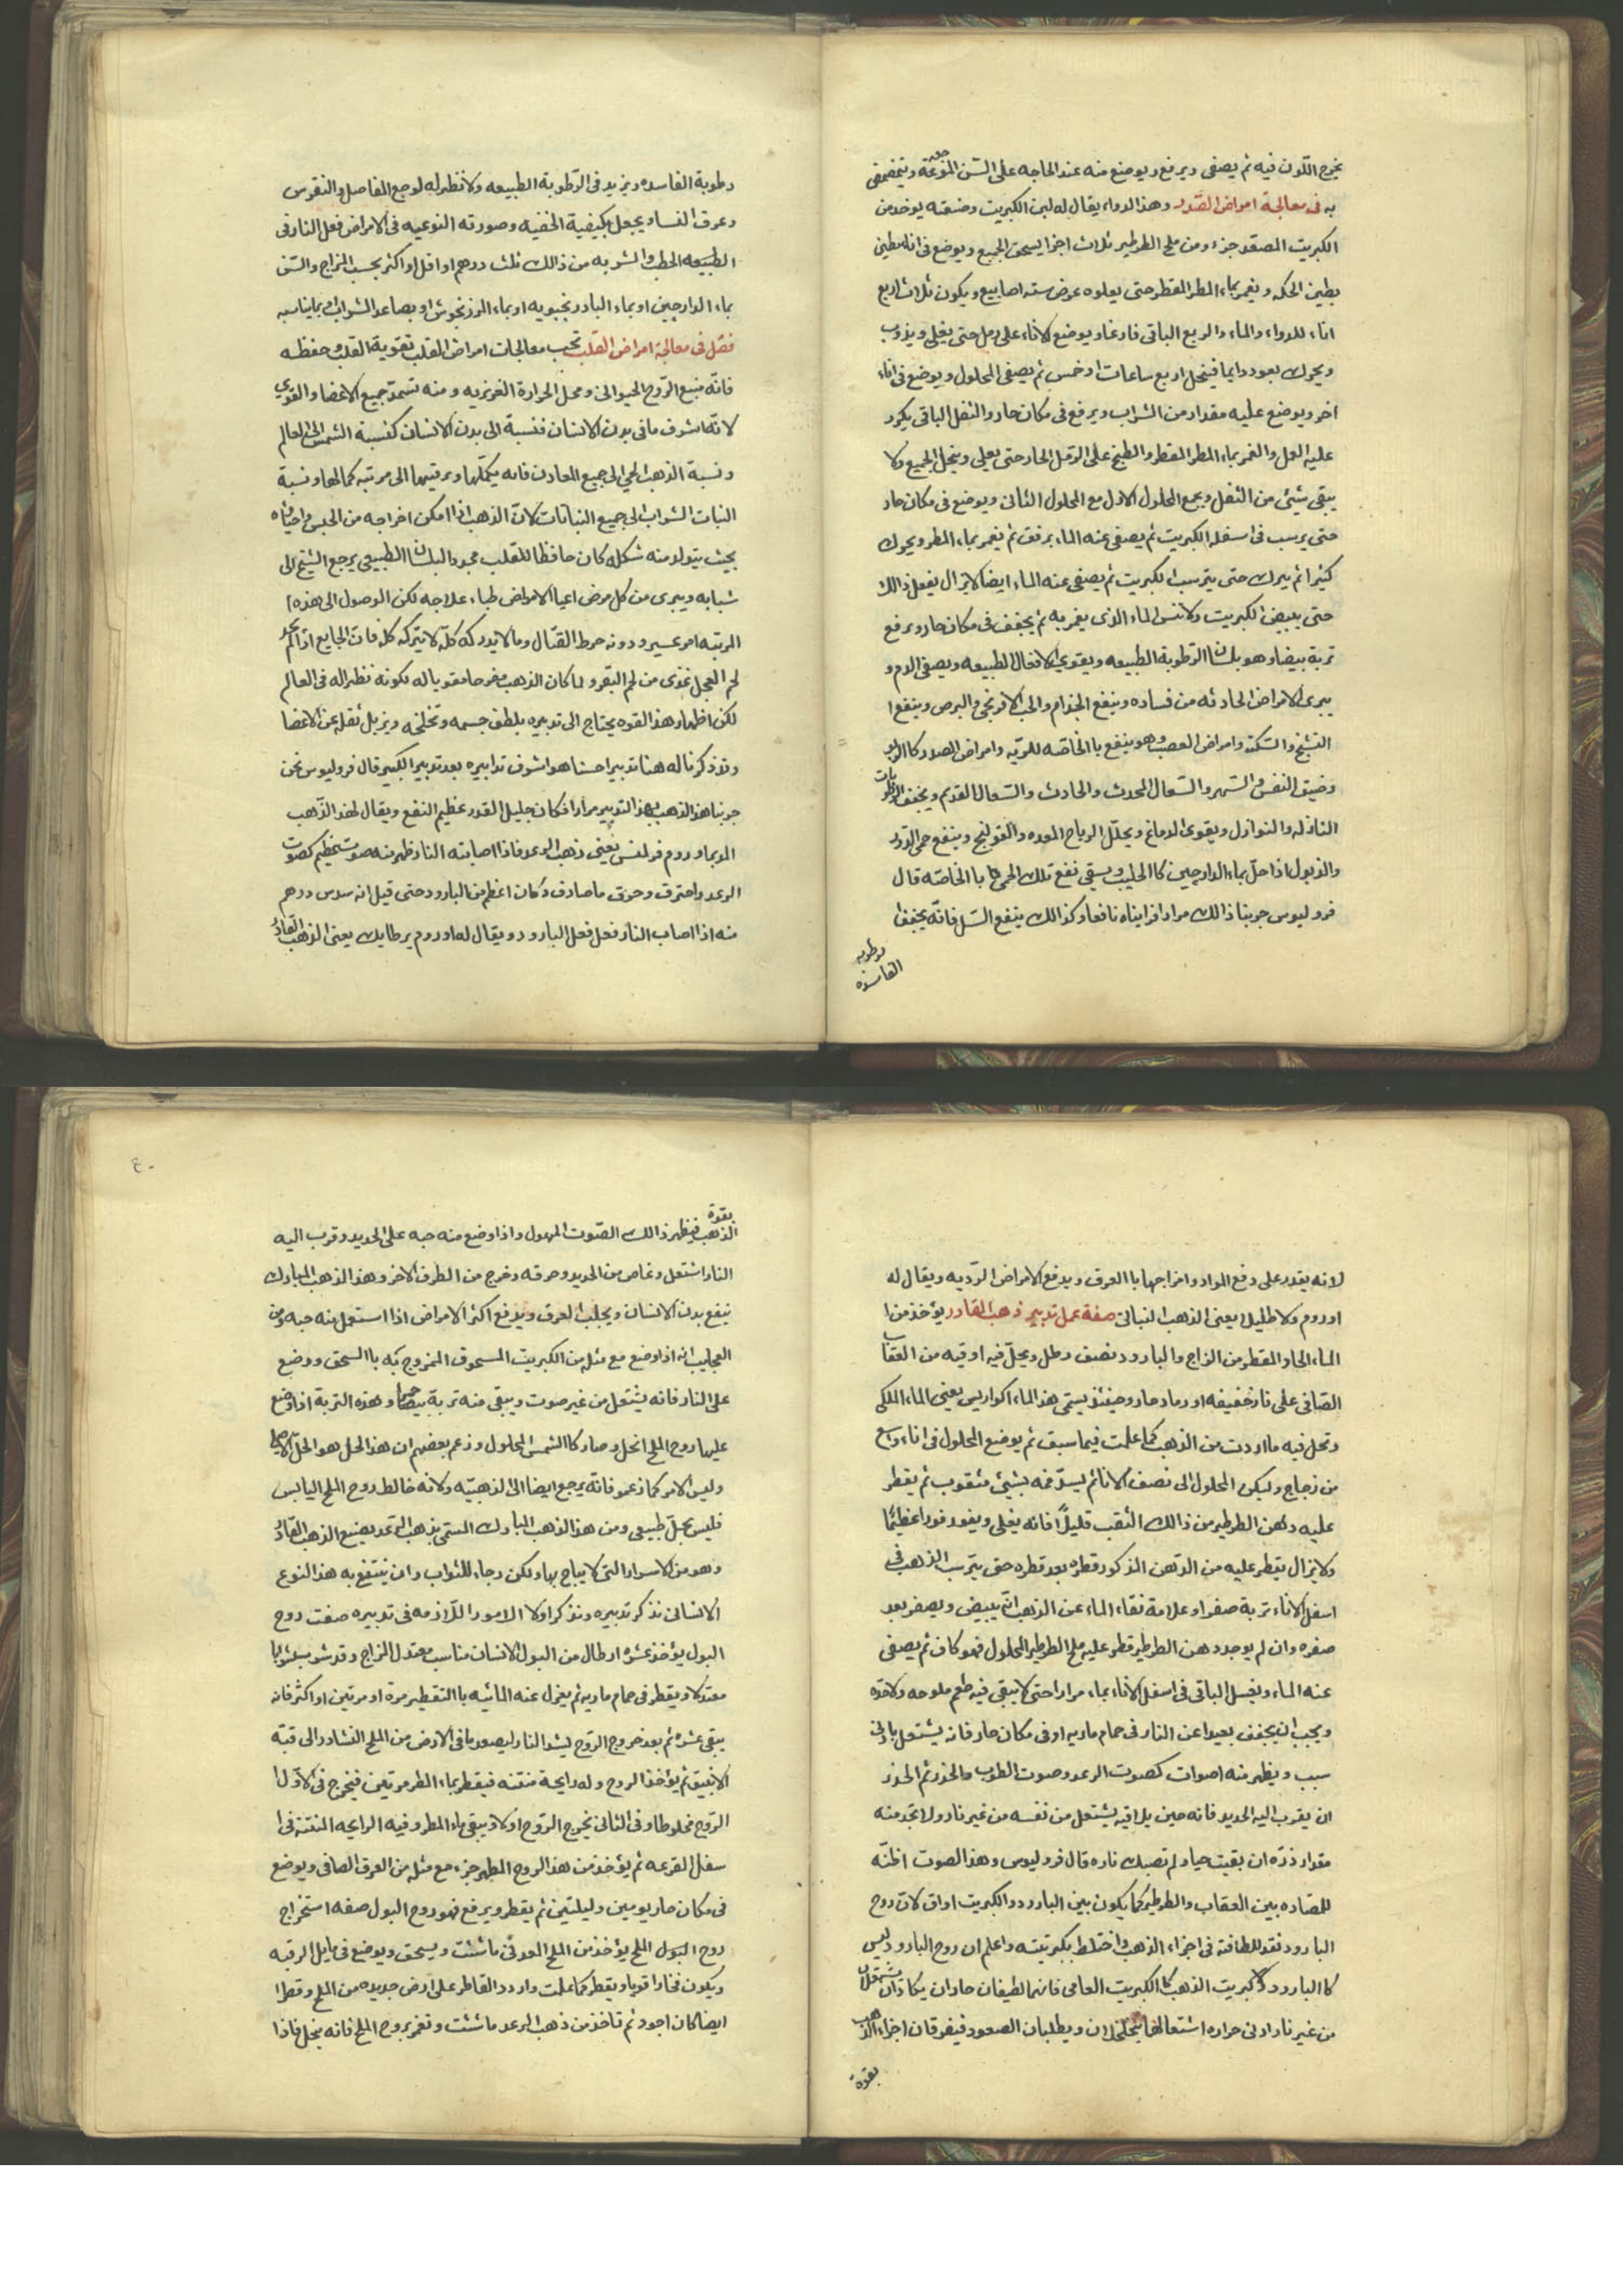 يخرج اللون فيه ثم يصفى ويرفع ويوضع منه عند الحاجه على السن الموجعة ويتمضمض
به فى معالجة امراض الصدر وهذا الدواء يقال له لبن الكبريت وصنعته يوخذ من
الكبريت المصعد جزء ومن ملح الطرطير ثلاث اجزا يسحق الجميع ويوضع فى اناء مطين
بطين الحكمه ويغمر بماء المطر المقطر حتى يعلوه عرض سته اصابيع ويكون ثلاث اربع
اناء للدواء والماء والربع الباقى فارغا ويوضع الاناء على رمل حتى يغلى ويذوب
ويحرك بعود دايما فينحل اربع ساعات او خمس ثم يصفى المحلول ويوضع فى اناء
اخر ويوضع عليه مقدار من الشراب ويرفع فى مكان حار والثفل الباقى يكرر
عليه العمل والغمر بماء المطر المقطر والطبخ على الرمل الحار حتى يغلى وينحل الجميع ولا
يبقى شيئ من الثفل ويجمع المحلول الاول مع المحلول الثانى ويوضع فى مكان حار
حتى يرسب فى اسفله الكبريت ثم يصفى عنه الماء برفق ثم يغمر بماء المطر ويحرك
كثيرا ثم يترك حتى يترسب الكبريت ثم يصفى عنه الماء ايضا لا يزال يفعل ذالك
حتى يبيض الكبريت ولا تنس الماء الذى يغمر به ثم يجفف فى مكان حار ويرفع
تربة بيضا وهو بلسان الرطوبة الطبيعه ويقوى الافعال الطبيعه ويصفى الدم و
يبرى الامراض الحادثه من فساده وينفع الجذام والحب الافرنجى والبرص وينفع ا
التشنج والسكتة وامراض العصب وهو ينفع باالخاصه للريه وامراض الصدر كاالربو
وضيق النفس والسهر والسعال المحدث والحادث والسعال القديم ويجفف الرطوبات
النازله والنوازل ويقوى الدماغ ويحلل الرياح المعده والقولنج وينفع حمى الدق
والذبول اذا حل بماء الدارجين كاالحليب ويسقى نفع تلك الحمى باالخاصه قال
فروليوس جربنا ذالك مرارا فرايناه نافعا وكذالك ينفع السل فانه يجفف
رطوبه
الفاسده
رطوبة الفاسده ويزيد فى الرطوبة الطبيعه ولا نظير له لوجع المفاصل والنقرس
وعرق النسا ويجعل بكيفية الخفيه وصورته النوعيه فى الامراض فعل النار فى
الطبيعه الحطب والشربه من ذالك ثلث درهم او اقل او اكثر بحسب المزاج والسن
بماء الدارجين او بماء البادرنجبويه او بماء المرزنجوش او بصاعد الشراب او بما يناسبه
فصل فى معالجة امراض القلب تجب معالجات امراض القلب تقوية القلب وحفظه
فانه منبع الروح الحيوانى ومحل الحرارة الغريزيه ومنه تستمد جميع الاعضا والقوى
لانه اشرف ما فى بدن الانسان فنسبة الى بدن الانسان كنسبة الشمس الى العالم
ونسبة الذهب الحى الى جميع المعادن فانه يكملها ويرقيها الى مرتبه كمالها ونسبة
النبات الشراب الى جميع النباتات لان الذهب اذا امكن اخراجه من الحبس واحياه
بحيث يتولد منه شكله كان حافظا للقلب مجددا البلسان الطبيعى يرجع الشيخ الى
شبابه ويبرى من كل مرض اعيا الامراض طباء علاجه لكن الوصول الى هذه ا
المرتبه امر عسير ودونه خرط القتاد وما لا يدرك كله لا يترك كله فان الجايع اذا لم يجد
لحم العجل غذى من لحم البقر ولما كان الذهب مفرحا مقويا له لكونه نظيرا له فى العالم
لكن اظهار هذا القوه يحتاج الى تدبيره يلطف جسمه وتخلخه ويزيل ثقله عن الاعضا
وقد ذكرنا له هنا تدبيرا حسنا هو اشرف تدابيره بعد تدبير الكبير قال فروليوس نحن
جربنا هذا الذهب بهذا التدبير مرارا فكان جليل القدر عظيم النفع ويقال لهذا الذهب
المدبر اوروم فولمنس يعنى ذهب الرعد فاذا اصابته النار ظهر منه صوت عظيم كصوت
الرعد واحترق وحرق ما صادف وكان اعظم من البارود حتى قيل انه سدس درهم
منه اذا اصاب النار فعل فعل البارود ويقال له اوروم برطابل يعنى الذهب القادر
لانه يقدر على دفع المواد واخراجها باالعرق ويدفع الامراض الرديه ويقال له
اوروم ولاطليل يعنى الذهب النباتى صفة عمل تدبير ذهب القادر يؤخذ من ا
الماء الحاد المقطر من الزاج والبارود نصف رطل ويحل فيه اوقيه من العقاب
الصافى على نار خفيفه او رماد حار وحينئذ يسمى هذا الماء اكواريس يعنى الماء الملكى
وتحل فيه ما اردت من الذهب كما علمت فيما سبق ثم يوضع المحلول فى اناء واسع
من زجاج وليكن المحلول الى نصف الانا ثم يسد فمه بشيئ مثقوب ثم يقطر
عليه دهن الطرطير من ذالك الثقب قليلا فانه يغلى ويفور فورا عظيما
ولا يزال يقطر عليه من الدهن المذكور قطره بعد قطره حتى يترسب الذهب فى
اسفل الاناء تربة صفرا وعلامة نقاء الماء عن الذهب انه يبيض ويصفر بعد
صفره وان لم يوجد دهن الطرطير قطر عليه ملح الطرطير المحلول فهو كاف ثم يصفى
عنه الماء ويغسل الباقى فى اسفل الاناء بماء مرارا حتى لا يبقى فيه طعم ملوحه ولا حده
ويجب ان يجفف بعيدا عن النار فى حمام ماريه او فى مكان حار فانه يشتعل بادنى
سبب ويظهر منه اصوات كصوت الرعد وصوت الطوب فالحذر ثم الحذر
ان يقرب اليه الحديد فانه حين يلاقيه يشتعل من نفسه من غير نار ولا تجد منه
مقدار ذره ان بقيت حيا ولم تصبك ناره قال فروليوس وهذا الصوت اظنه
للتضاده بين العقاب والطرطير كما يكون بين البارود والكبريت اواق لان روح
البارود نفذ للطافته فى اجزاء الذهب واختلط بكبريتيته واعلم ان روح البارود ليس
كاالبارود ولا كبريت الذهب كاالكبريت العامى فانهما لطيفان حاران يكادان يشتعلان
من غير نار ادنى حراره اشتعالها ويطلبان الصعود فيفرقان اجزاء الذهب
بقوة
٤٠
بقوة
الذهب فيظهر ذالك الصوت المهول واذا وضع منه حبه على الحديد وقرب اليه
النار اشتعل وغاص من الحديد وحرقه وخرج من الطرف الاخر وهذا الذهب المبارك
ينفع بدن الانسان ويجلب العرق ويدفع اكثر الامراض اذا استعمل منه حبه ومن
العجايب انه اذا وضع مع مثله من الكبريت المسحوق الممزوج به باالسحق ووضع
على النار فانه يشتعل من غير صوت ويبقى منه تربة بيضا وهذه التربة اذا وضع
عليها روح الملح انحل وصار كاالشمس المحلول وزعم بعضهم ان هذا الحل هو الحل الاصلى
وليس الامر كما زعمو فانه يرجع ايضا الى الذهبيه ولانه خالط روح الملح اليابس
فليس بحل طبيعى ومن هذا الذهب المبارك المسمى بذهب الرعد يصنع الذهب القادر
وهو من الاسرار التى لا يباح بها ولكن رجاء للثواب وان ينتفع به هذا النوع
الانسانى نذكر تدبيره ونذكر اولا الامور اللازمه فى تدبيره صفت روح
البول يؤخذ عشره ارطال من البول الانسان مناسب معتدل المزاج وقد شرب شرابا
معتدلا ويقطر فى حمام ماريه ثم يعزل عنه المائيه باالتقطير مرة او مرتين او اكثر فانه
يبقى عشره ثم بعد خروج الروح يشد النار ليصعد ما فى الارض من الملح النشادر الى قبة
الانبيق ثم يؤخذ الروح وله رايحة منتنه فيقطر بماء المطر مرتين فيخرج فى الاول ا
الروح مخلوطا وفى الثانى يخرج الروح اولا ويبقى ماء المطر وفيه الرايحه المنتنه فى ا
سفل القرعه ثم يؤخذ من هذا الروح المطهر جزء مع مثله من العرق الصافى ويوضع
فى مكان حار يومين وليلتين ثم يقطر ويرفع فهو روح البول صفه استخراج
روح البول الملح يؤخذ من الملح المعدنى ما شئت ويسحق ويوضع فى مايل الرقبه
ويكون فخارا قويا ويقطر كما علمت وارد القاطر على ارض جديده من الملح وقطر ا
ايضا كان اجود ثم تاخذ من ذهب الرعد ما شئت وتغمر بروح الملح فانه ينحل فاذا